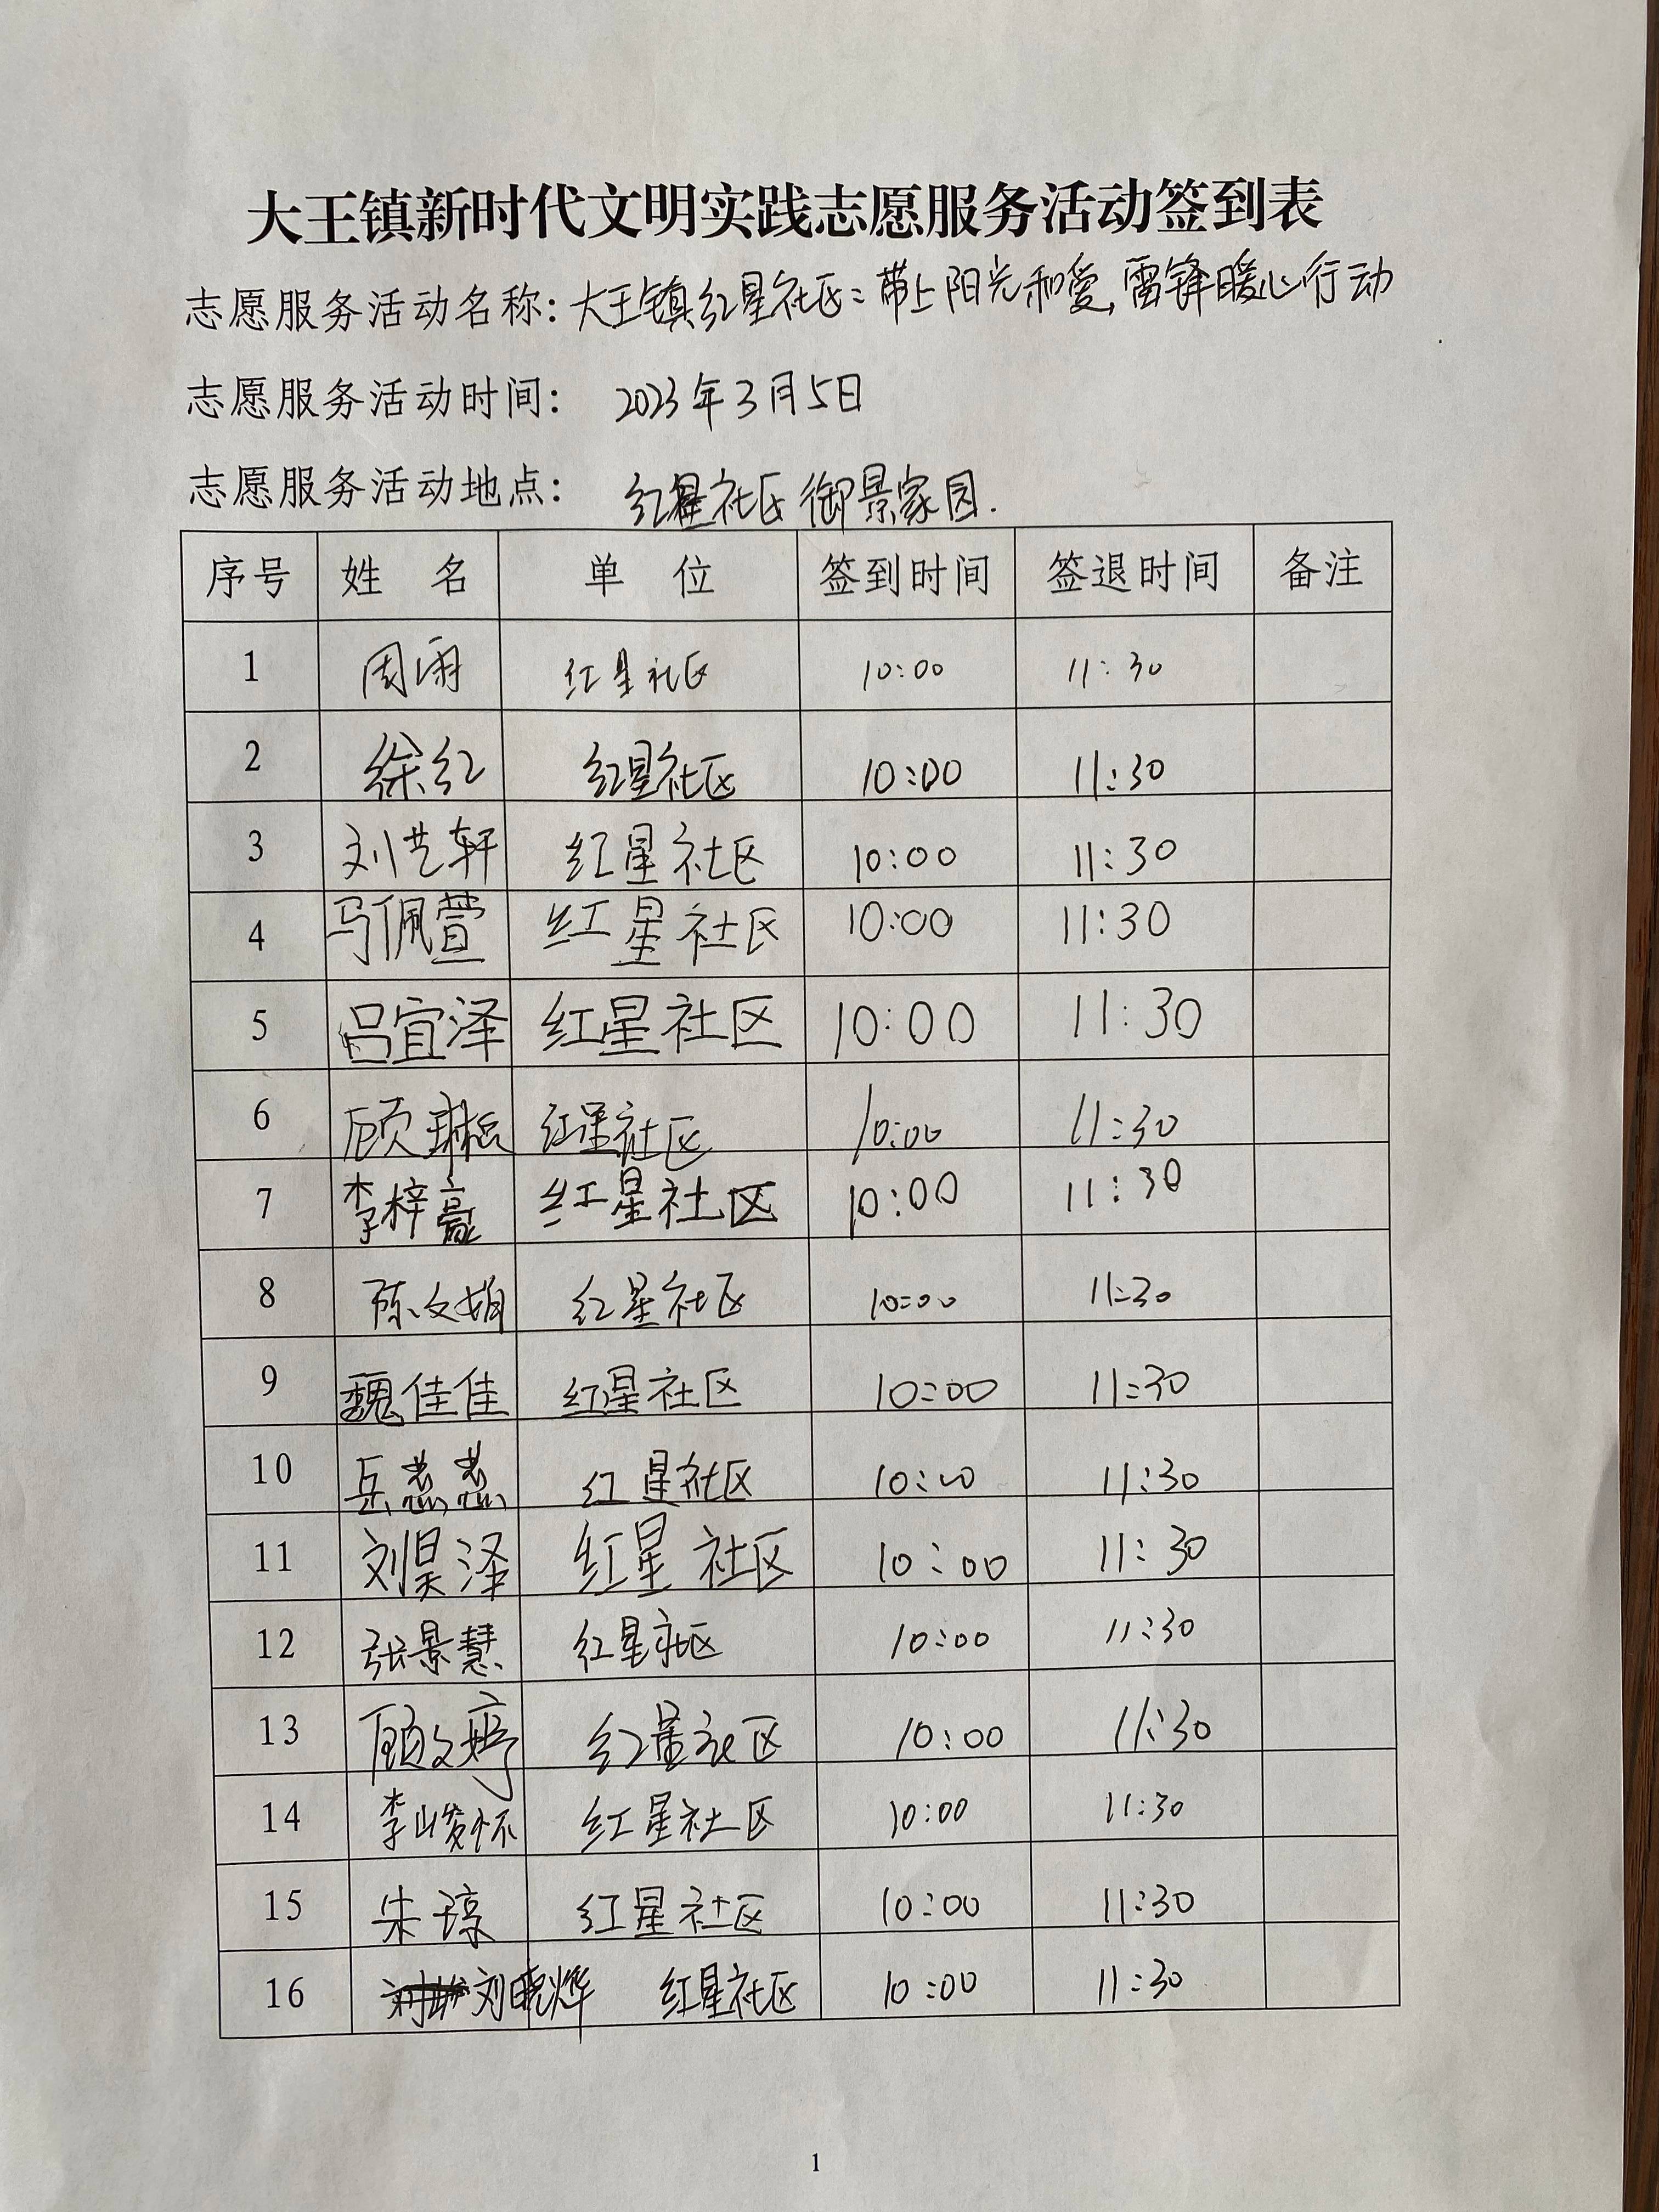 大王镇新时代文明实践志愿服务活动签到表
志愿服务活动名称：大王镇红星社区：带上阳光和爱，雷锋暖心行动
志愿服务活动时间： 2023年3月5日
志愿服务活动地点： 红星社区御景家园.
序号 姓 名 单 位 签到时间 签退时间 备注
1 周雨 红星社区 10:00 11:30
2 徐红 红星社区 10:00 11:30
3 刘艺轩 红星社区 10:00 11:30
4 马佩萱 红星社区 10:00 11:30
5 吕宜泽 红星社区 10:00 11:30
6 顾琳 红星社区 10:00 11:30
7 李梓豪 红星社区 10:00 11:30
8 陈文娟 红星社区 10:00 11:30
9 魏佳佳 红星社区 10:00 11:30
10 岳蕊蕊 红星社区 10:00 11:30
11 刘昊泽 红星社区 10:00 11:30
12 张景慧 红星社区 10:00 11:30
13 顾文婷 红星社区 10:00 11:30
14 李峻怀 红星社区 10:00 11:30
15 朱 红星社区 10:00 11:30
16 刘晓烨 红星社区 10:00 11:30
1